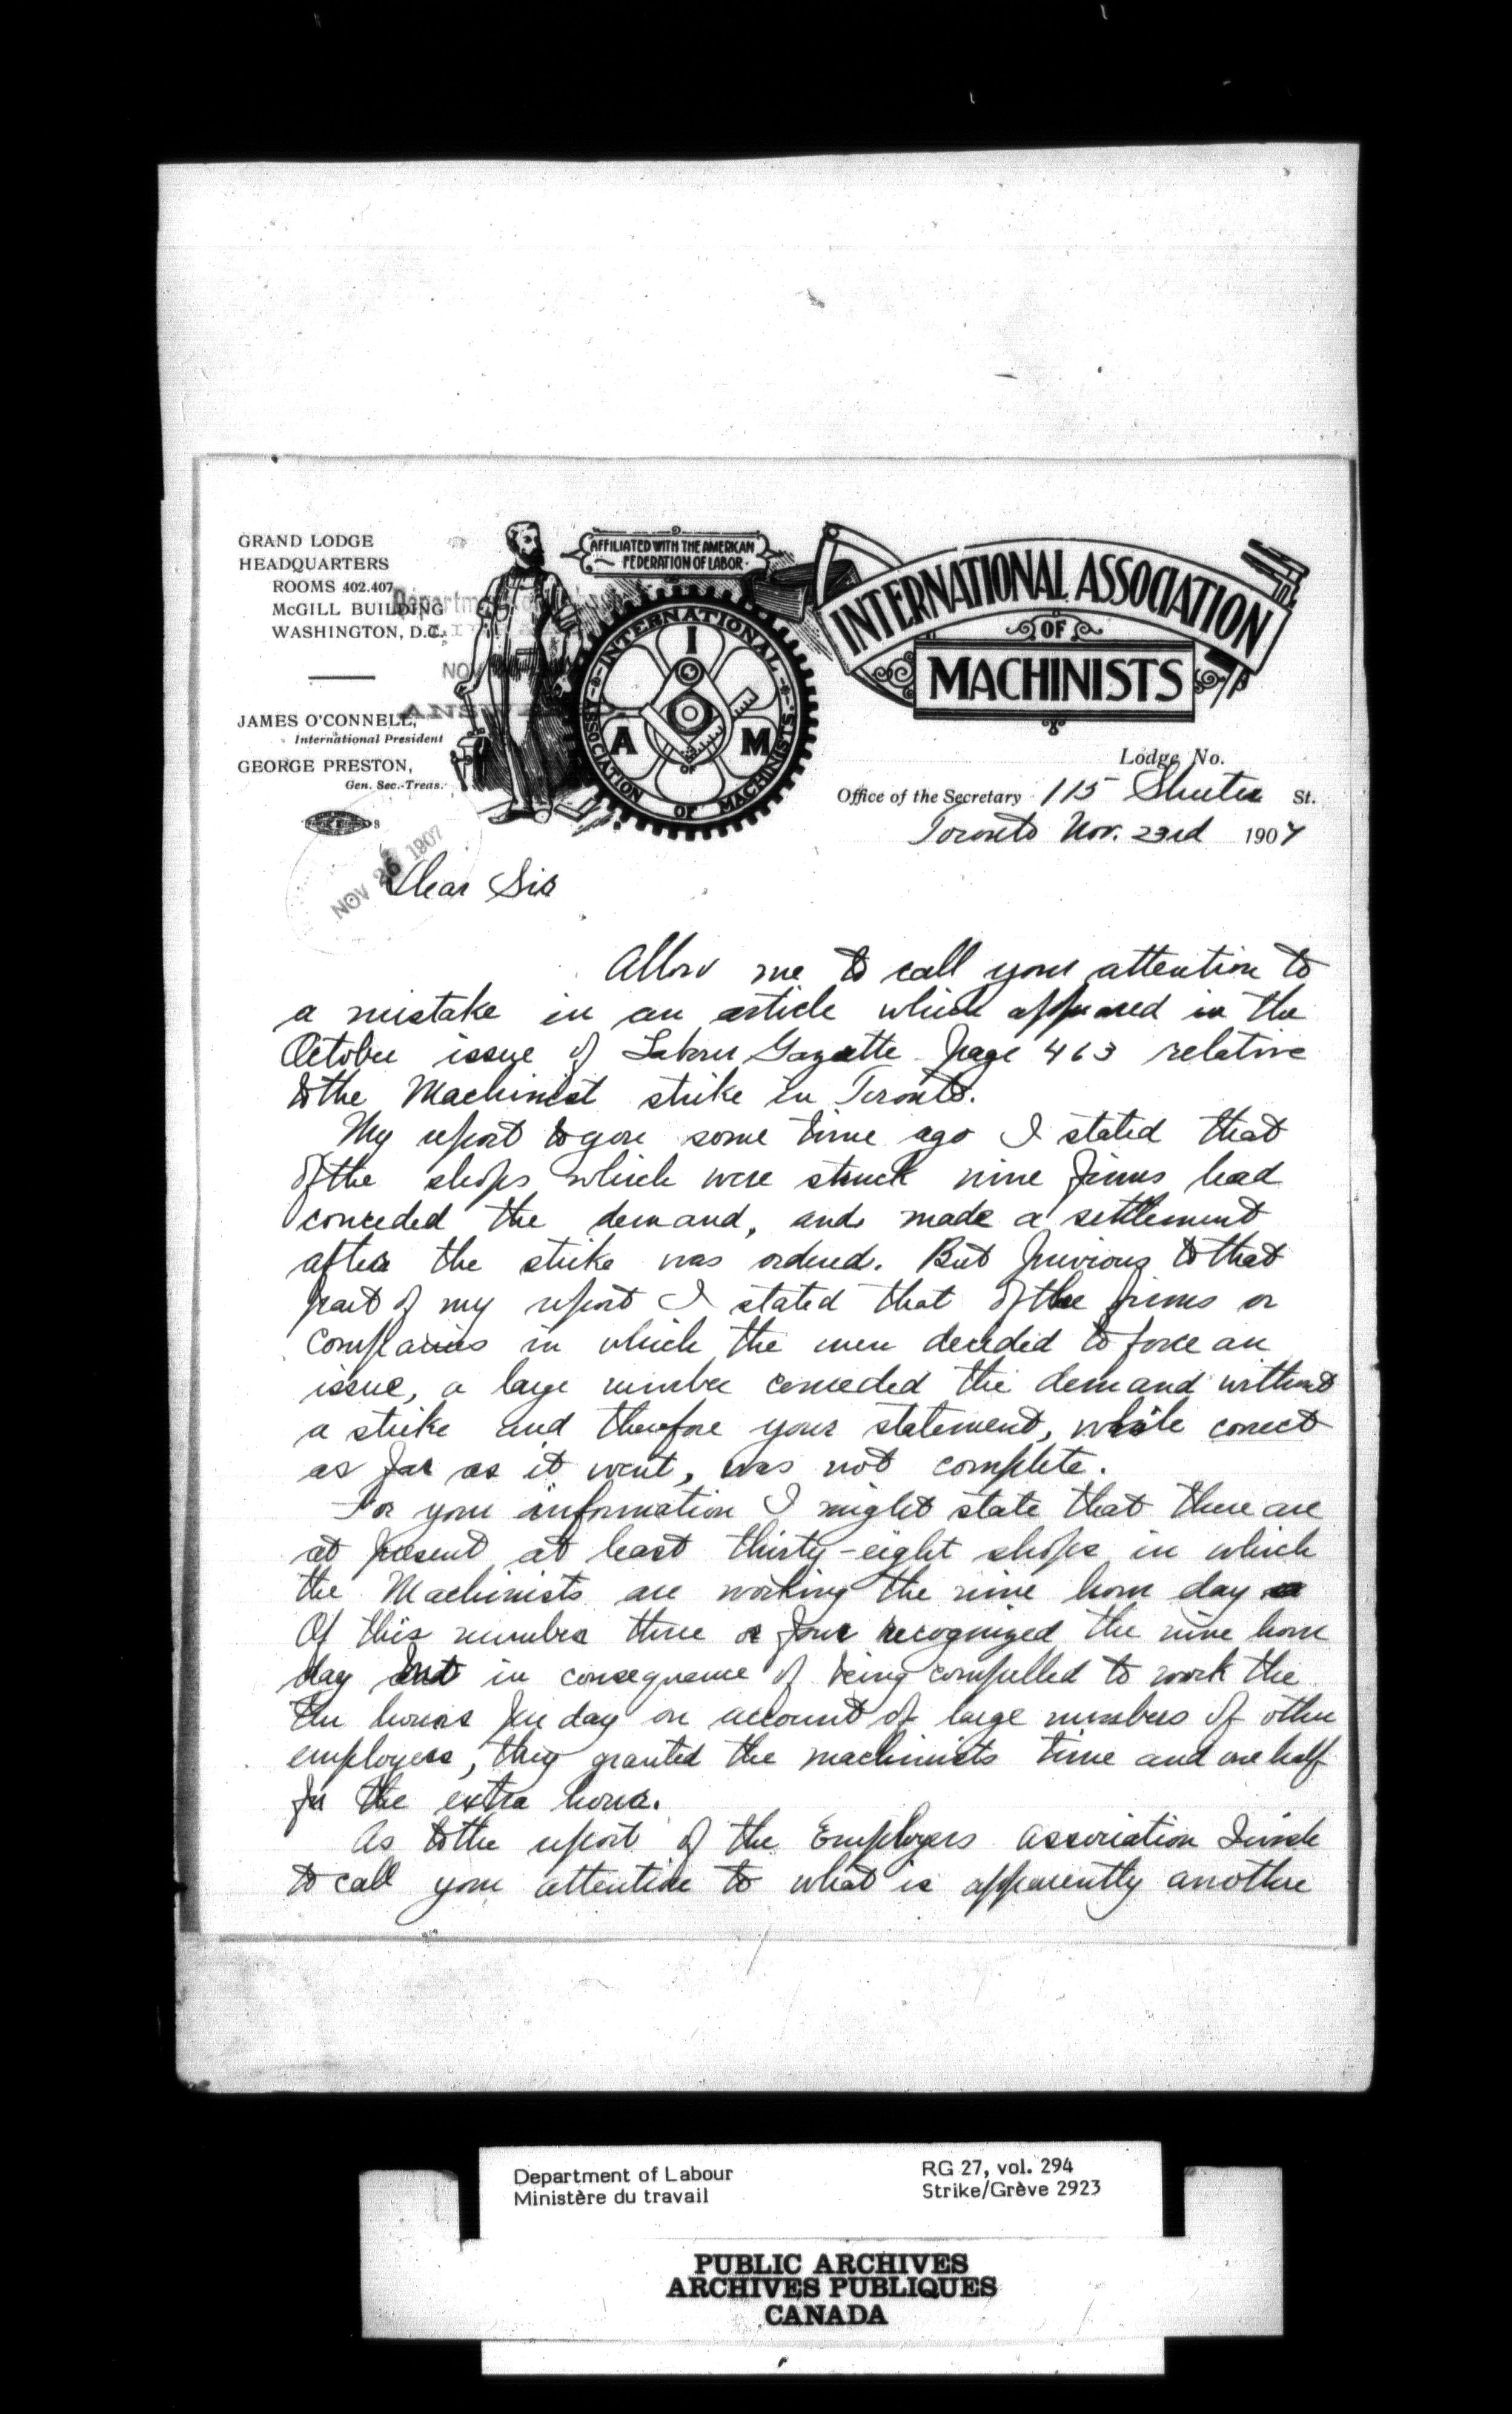 GRAND LODGE
HEADQUARTERS
ROOMS 402.407
McGILL BUILDING
WASHINGTON, D.C.
JAMES O'CONNELL,
International President
GEORGE PRESTON,
Gen. Sec.-Treas.
AFFILIATED WITH THE AMERICAN
FEDERATION OF LABOR
INTERNATIONAL
ASSOCIATION OF MACHINISTS
I
A M
OF
INTERNATIONAL ASSOCIATION
OF
MACHINISTS
Lodge No.
Office of the Secretary 115 Shuter St.
Toronto Nov. 23rd 1907
NOV 26 1907
Dear Sir
Allow me to call your attention to
a mistake in an article which appeared in the
October issue of Labour Gazette page 463 relative
to the Machinist strike in Toronto.
My report to you some time ago I stated that
of the shops which were struck nine firms had
conceded the demand, and made a settlement
after the strike was ordered. But previous to that
part of my report I stated that of the firms or
companies in which the men decided to force an
issue, a large number conceded the demand without
a strike and therefore your statement, while correct
as far as it went, was not complete.
For your information I might state that there are
at present at least thirty-eight shops in which
the Machinists are working the nine hour day
Of this number three or four recognized the nine hour
day but in consequence of being compelled to work the
ten hours per day on account of large numbers of other
employees, they granted the machinists time and one half
for the extra hour.
As to the report of the Employers Association I wish
to call your attention to what is apparently another
Department of Labour
Ministère du travail
RG 27, vol. 294
Strike/Grève 2923
PUBLIC ARCHIVES
ARCHIVES PUBLIQUES
CANADA